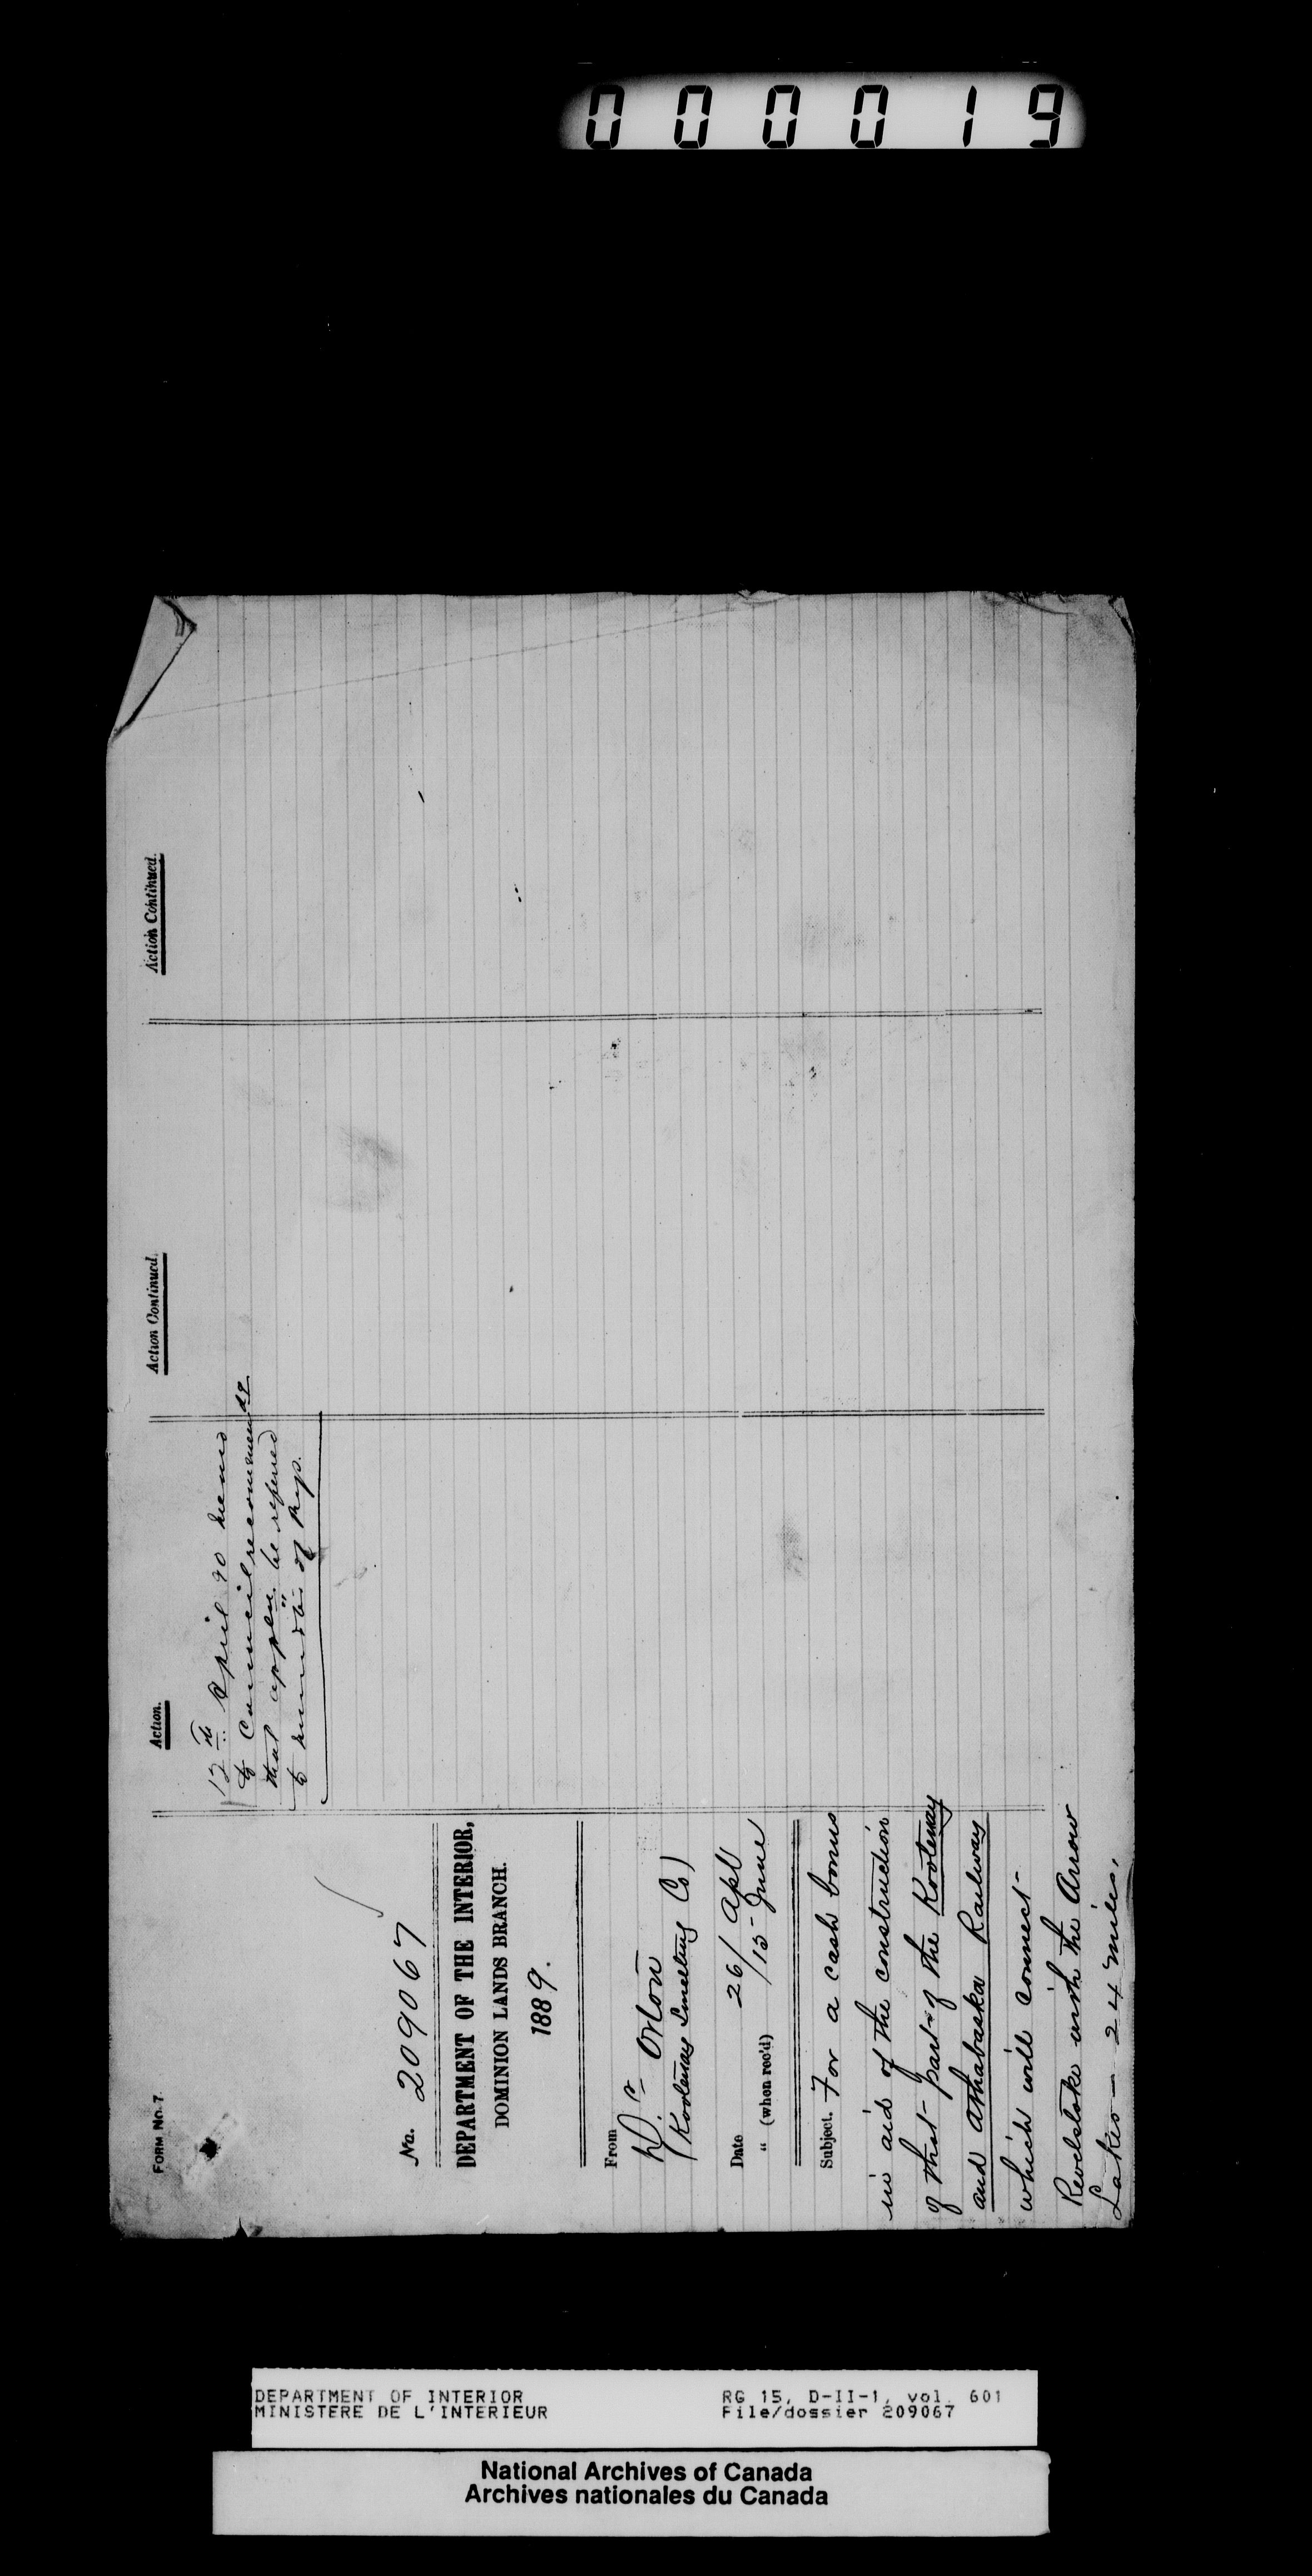 000019
FORM No. 7.
No. 209067
DEPARTMENT OF THE INTERIOR,
DOMINION LANDS BRANCH.
1889.
From
Dr Orton
(Kootenay Smelting Co)
Date 26/ Apl
" (when rec'd) /15 June
Subject. For a cash bonus
in aid of the construction
of that part of the Kootenay
and Athabaska Railway
which will connect
Revelstoke with the Arrow
Lakes - 24 miles.
Action.
12th April 90 memo
to Council recommendg
that appln be referred
to minster of Ryp.
Action Continued.
Action Continued.
DEPARTMENT OF INTERIOR
MINISTERE DE L'INTERIEUR
RG 15, D-II-1, vol. 601
File/dossier 209067
National Archives of Canada
Archives nationales du Canada